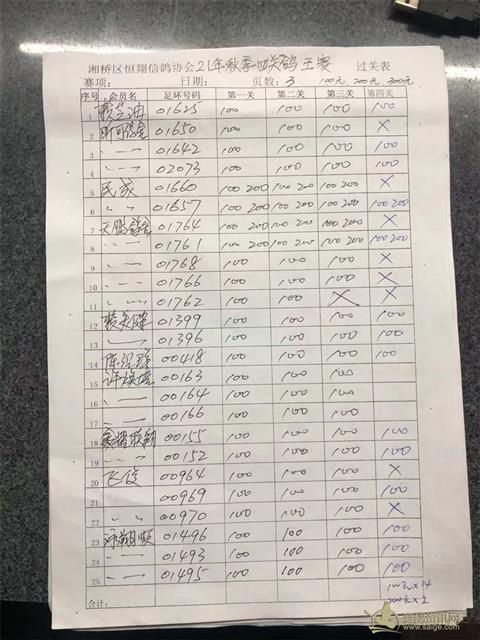 湘桥区恒翔信鸽协会21年秋季四关鸽王赛 过关表
赛项: 日期: 页数:3 100元 200元 300元
序号 会员名 足环号码 第一关 第二关 第三关 第四关
1 01625 100 100 100 100
2 01650 100 100 100 ×
3 〃 〃 01642 100 100 100 100
4 〃 〃 02073 100 100 100 100
5 01660 100 200 100 200 100 200 ×
6 〃 〃 01657 100 200 100 200 100 200 100 200
7 天鹏鸽舍 01764 100 200 100 200 100 200 ×
8 〃 〃 01761 100 200 100 200 100 200 100 200
9 〃 〃 01768 100 100 100 ×
10 〃 〃 01766 100 100 100 ×
11 〃 〃 01762 100 100 × ×
12 01399 100 100 100 100
13 〃 〃 01396 100 100 100 100
14 00418 100 100 100 100
15 00163 100 100 100
16 〃 〃 00164 100 100 100
17 〃 〃 00166 100 100 100
18 00155 100 100 100 100
19 〃 〃 00152 100 100 100 100
20 00964 100 100 100 ×
21 00969 100 100 100 100
22 〃 〃 00970 100 100 100 ×
23 01496 100 100 100 100
24 〃 〃 01493 100 100 100 100
25 〃 〃 01495 100 100 100 100
100元×14
合计: 200元×2
www.saige.com